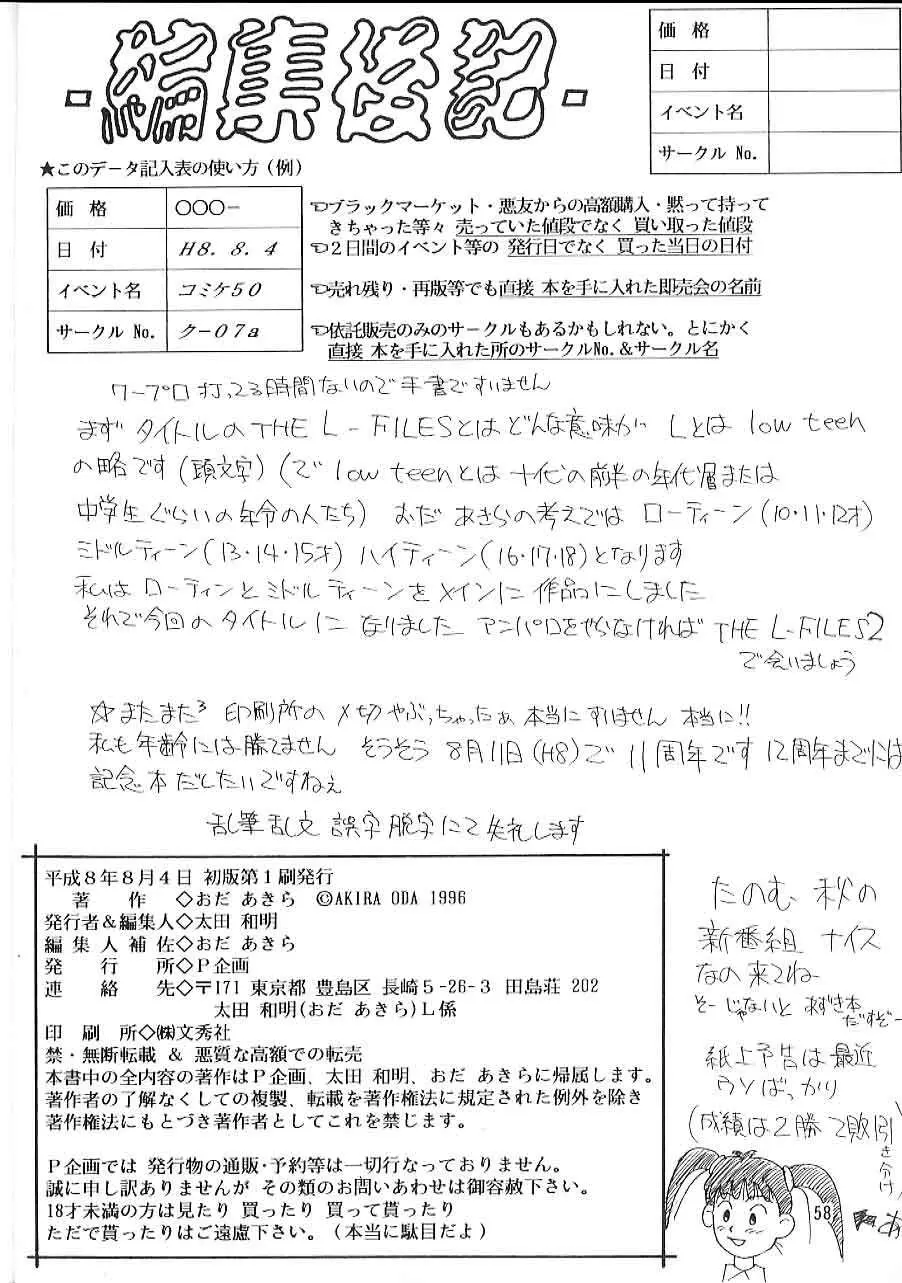 -編集後記-
価格
日付
イベント名
サークル No.
★このデータ記入表の使い方(例)
価格 ○○○-
日付 H8. 8. 4
イベント名 コミケ50
サークル No. ク-07a
ブラックマーケット・悪友からの高額購入・黙って持って
きちゃった等々 売っていた値段でなく 買い取った値段
2日間のイベント等の 発行日でなく 買った当日の日付
売れ残り・再版等でも直接 本を手に入れた即売会の名前
依託販売のみのサークルもあるかもしれない。とにかく
直接 本を手に入れた所のサークルNo.&サークル名
ワープロ打ってる時間ないので手書ですいません
まず タイトルの THE L-FILESとは どんな意味か Lとは low teen
の略です(頭文字)(で low teenとは 十代の前半の年代層または
中学生ぐらいの年令の人たち) おだ あきらの考えでは ローティーン(10・11・12才)
ミドルティーン(13・14・15才) ハイティーン(16・17・18)となります
私は ローティンとミドルティーンをメインに 作品にしました
それで今回のタイトルに なりました アンパロをやらなければ THE L-FILES2
で会いましょう
☆またまた3 印刷所の〆切やぶっちゃったぁ 本当にすいません 本当に!!
私も年齢には勝てません そうそう 8月11日(H8)で 11周年です 12周年までには
記念本だしたいですねぇ
乱筆乱文 誤字脱字にて失礼します
平成8年8月4日 初版第1刷発行
著作◇おだ あきら ©AKIRA ODA 1996
発行者&編集人◇太田 和明
編集人補佐◇おだ あきら
発行所◇P企画
連絡先◇〒171 東京都 豊島区 長崎5-26-3 田島荘 202
太田 和明(おだ あきら)L係
印刷所◇㈱文秀社
禁・無断転載 & 悪質な高額での転売
本書中の全内容の著作はP企画、太田 和明、おだ あきらに帰属します。
著作者の了解なくしての複製、転載を著作権法に規定された例外を除き
著作権法にもとづき著作者としてこれを禁じます。
P企画では 発行物の通販・予約等は一切行なっておりません。
誠に申し訳ありませんが その類のお問いあわせは御容赦下さい。
18才未満の方は見たり 買ったり 買って貰ったり
ただで貰ったりはご遠慮下さい。(本当に駄目だよ)
たのむ 秋の
新番組 ナイス
なの 来てね
そーじゃないと あずき本
だすぞー
紙上予告は最近
ウソばっかり
(成績は2勝2敗1引き分け)
58
あ